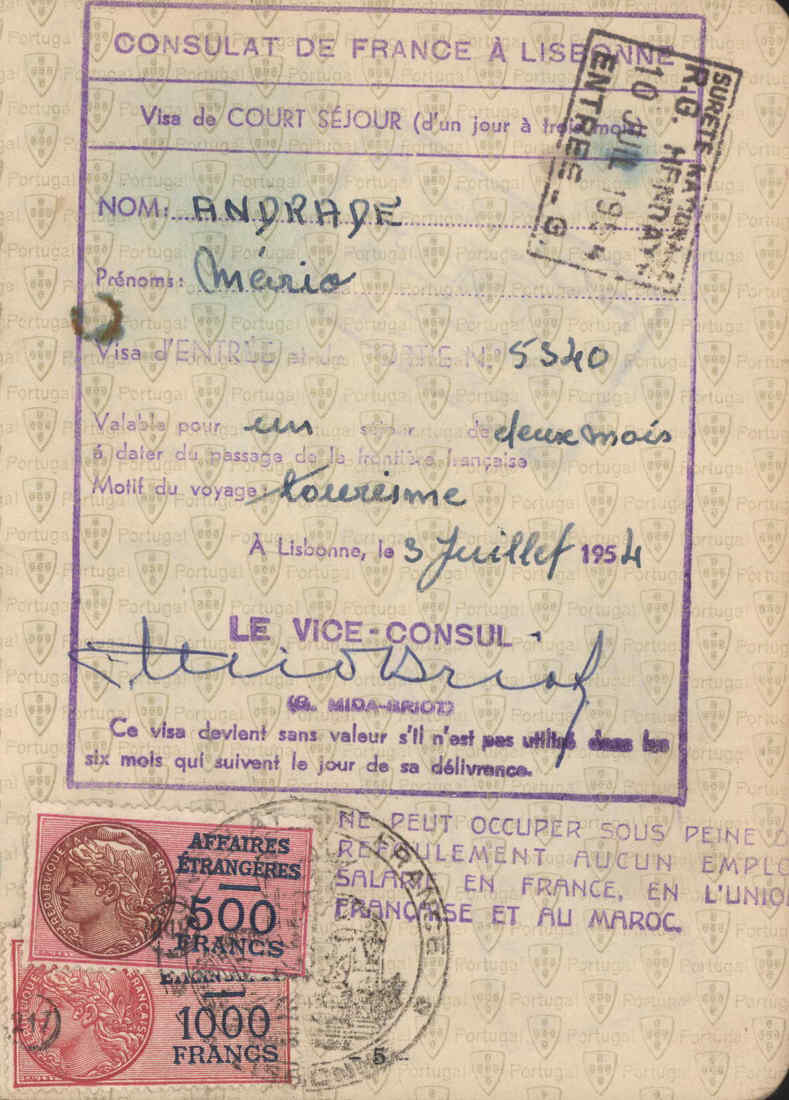 CONSULAT DE FRANCE À LISBONNE
Visa de COURT SÉJOUR (d'un jour à trois mois)
SURETÉ NATIONALE
R.G. HENDAYE
10 JUIL 1954
ENTREE - G.
NOM: ANDRADE
Prénoms: Mário
Visa d'ENTRÉE et de SORTIE N.º 5340
Valable pour un séjour de deux mois
à dater du passage de la frontière française
Motif du voyage: tourisme
À Lisbonne, le 3 Juillet 1954
LE VICE-CONSUL
(G. MIDA-BRIOT)
Ce visa devient sans valeur s'il n'est pas utilisé dans les
six mois qui suivent le jour de sa délivrance.
NE PEUT OCCUPER SOUS PEINE D
REFOULEMENT AUCUN EMPLO
SALARIÉ EN FRANCE, EN L'UNION
FRANÇAISE ET AU MAROC.
AFFAIRES
ÉTRANGÈRES
500
FRANCS
REPUBLIQUE FRANÇAISE
1000
FRANCS
FRANCE
- 5 -
Portugal